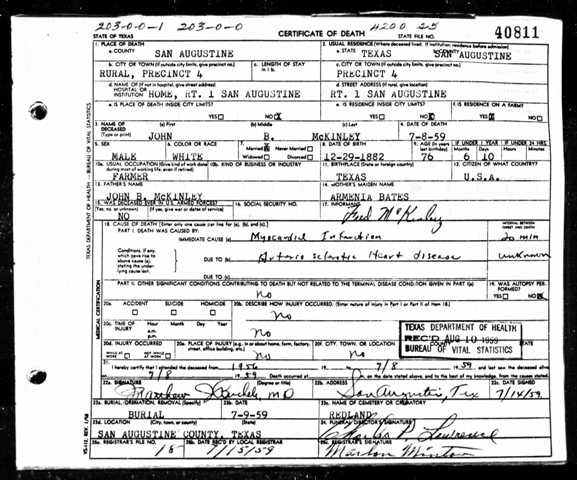 203-0-0-1 203-0-0 4200 25
STATE OF TEXAS CERTIFICATE OF DEATH 40811
1. PLACE OF DEATH 2. USUAL RESIDENCE (Where deceased lived. If institution: residence before admission)
a. COUNTY SAN AUGUSTINE a. STATE TEXAS b. COUNTY SAN AUGUSTINE
b. CITY OR TOWN (If outside city limits, give precinct no.) c. LENGTH OF STAY in 1 b c. CITY OR TOWN (If outside city limits, give precinct no.)
RURAL, PRECINCT 4 PRECINCT 4
d. NAME OF (If not in hospital, give street address) d. STREET ADDRESS (If rural, give location)
HOSPITAL OR INSTITUTION HOME, RT. 1 SAN AUGUSTINE RT. 1 SAN AUGUSTINE
e. IS PLACE OF DEATH INSIDE CITY LIMITS? e. IS RESIDENCE INSIDE CITY LIMITS? f. IS RESIDENCE ON A FARM?
YES NO X YES NO X YES X NO
3. NAME OF DECEASED (Type or print) (a) First (b) Middle (c) Last 4. DATE OF DEATH
JOHN B. McKINLEY 7-8-59
5. SEX 6. COLOR OR RACE 7. Married X Never Married Widowed Divorced 8. DATE OF BIRTH 9. AGE (In years last birthday) IF UNDER 1 YEAR IF UNDER 24 HRS.
Months Days Hours Minutes
MALE WHITE 12-29-1882 76 6 10
10a. USUAL OCCUPATION (Give kind of work done during most of working life, even if retired) 10b. KIND OF BUSINESS OR INDUSTRY 11. BIRTHPLACE (State or foreign country) 12. CITIZEN OF WHAT COUNTRY?
FARMER TEXAS U.S.A.
13. FATHER'S NAME 14. MOTHER'S MAIDEN NAME
JOHN B. McKINLEY ARMENIA BATES
15. WAS DECEASED EVER IN U.S. ARMED FORCES? 16. SOCIAL SECURITY NO. 17. INFORMANT
(Yes, no, or unknown) (If yes, give war or dates of service)
NO Fred McKinley
18. CAUSE OF DEATH [Enter only one cause per line for (a), (b), and (c).] INTERVAL BETWEEN ONSET AND DEATH
PART I. DEATH WAS CAUSED BY:
IMMEDIATE CAUSE (a) Myocardial Infarction 20 min
Conditions, if any, which gave rise to above cause (a), stating the underlying cause last.
DUE TO (b) Arterio sclerotic Heart disease unknown
DUE TO (c)
PART II. OTHER SIGNIFICANT CONDITIONS CONTRIBUTING TO DEATH BUT NOT RELATED TO THE TERMINAL DISEASE CONDITION GIVEN IN PART I (a) 19. WAS AUTOPSY PERFORMED?
No YES NO X
20a. ACCIDENT SUICIDE HOMICIDE 20b. DESCRIBE HOW INJURY OCCURRED. (Enter nature of injury in Part I or Part II of item 18.)
no
20c. TIME OF INJURY Hour Month Day Year
a.m.
p.m. No
TEXAS DEPARTMENT OF HEALTH
REC'D AUG 10 1959
BUREAU OF VITAL STATISTICS
20d. INJURY OCCURRED 20e. PLACE OF INJURY (e.g. in or about home, farm, factory, street, office building, etc.) 20f. CITY, TOWN, OR LOCATION COUNTY STATE
WHILE AT WORK NOT WHILE AT WORK no No
21. I hereby certify that I attended the deceased from 1956 19 to 7/8 1959 and last saw the deceased alive
on 7/8 1959 Death occurred at m. on the date stated above; and to the best of my knowledge, from the causes stated.
22a. SIGNATURE (Degree or title) 22b. ADDRESS 22c. DATE SIGNED
Matthew MD San Augustine, Tex 7/14/59
23a. BURIAL, CREMATION, REMOVAL (Specify) 23b. DATE 23c. NAME OF CEMETERY OR CREMATORY
BURIAL 7-9-59 REDLAND
23d. LOCATION (City, town, or county) (State) 24. FUNERAL DIRECTOR'S SIGNATURE
SAN AUGUSTINE COUNTY, TEXAS Charles Lawrence
25a. REGISTRAR'S FILE NO. 25b. DATE REC'D BY LOCAL REGISTRAR 25c. REGISTRAR'S SIGNATURE
18 7/15/59 Marlon Minton
TEXAS DEPARTMENT OF HEALTH — BUREAU OF VITAL STATISTICS
MEDICAL CERTIFICATION